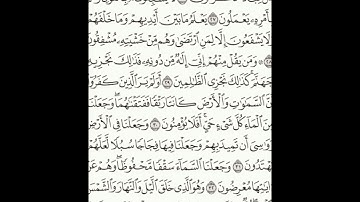 أَمْرِهِۦ يَعْمَلُونَ ٢٧ يَعْلَمُ مَا بَيْنَ أَيْدِيهِمْ وَمَا خَلْفَهُمْ
لَا يَشْفَعُونَ إِلَّا لِمَنِ ٱرْتَضَىٰ وَهُم مِّنْ خَشْيَتِهِۦ مُشْفِقُونَ
٢٨ وَمَن يَقُلْ مِنْهُمْ إِنِّىٓ إِلَٰهٌ مِّن دُونِهِۦ فَذَٰلِكَ نَجْزِيهِ
جَهَنَّمَ كَذَٰلِكَ نَجْزِى ٱلظَّٰلِمِينَ ٢٩ أَوَلَمْ يَرَ ٱلَّذِينَ كَفَرُوٓا۟
ٱلسَّمَٰوَٰتِ وَٱلْأَرْضَ كَانَتَا رَتْقًا فَفَتَقْنَٰهُمَا ۖ وَجَعَلْنَا
مِنَ ٱلْمَآءِ كُلَّ شَىْءٍ حَىٍّ ۖ أَفَلَا يُؤْمِنُونَ ٣٠ وَجَعَلْنَا فِى ٱلْأَرْضِ
رَوَٰسِىَ أَن تَمِيدَ بِهِمْ وَجَعَلْنَا فِيهَا فِجَاجًا سُبُلًا لَّعَلَّهُمْ
يَهْتَدُونَ ٣١ وَجَعَلْنَا ٱلسَّمَآءَ سَقْفًا مَّحْفُوظًا ۖ وَهُمْ عَنْ
ءَايَٰتِهَا مُعْرِضُونَ ٣٢ وَهُوَ ٱلَّذِى خَلَقَ ٱلَّيْلَ وَٱلنَّهَارَ وَٱلشَّمْسَ